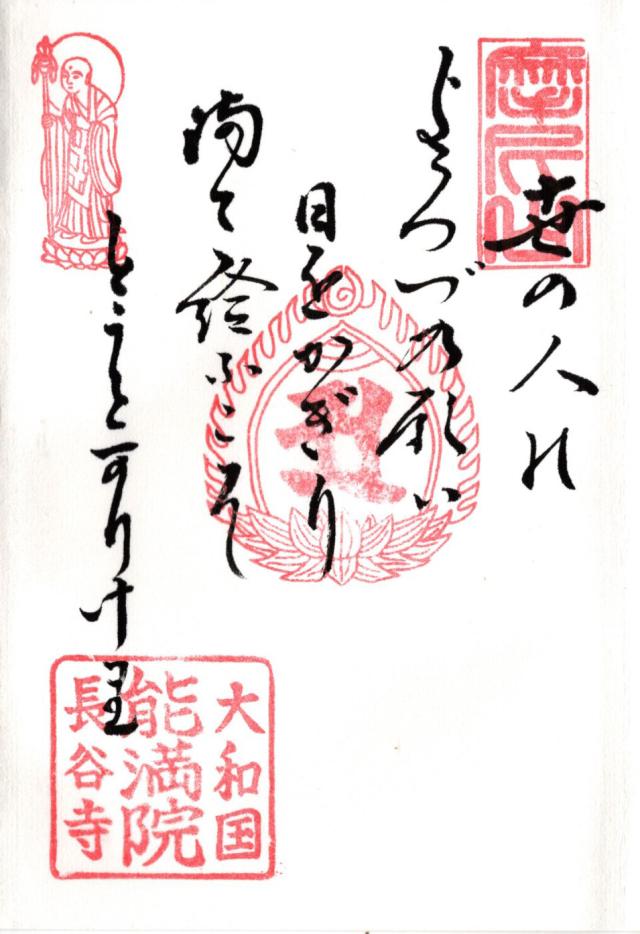 摩尼山
世の人の
よろづの願い
日をかぎり
満て給ふこそ
とうと可りけ里
大和国
能満院
長谷寺